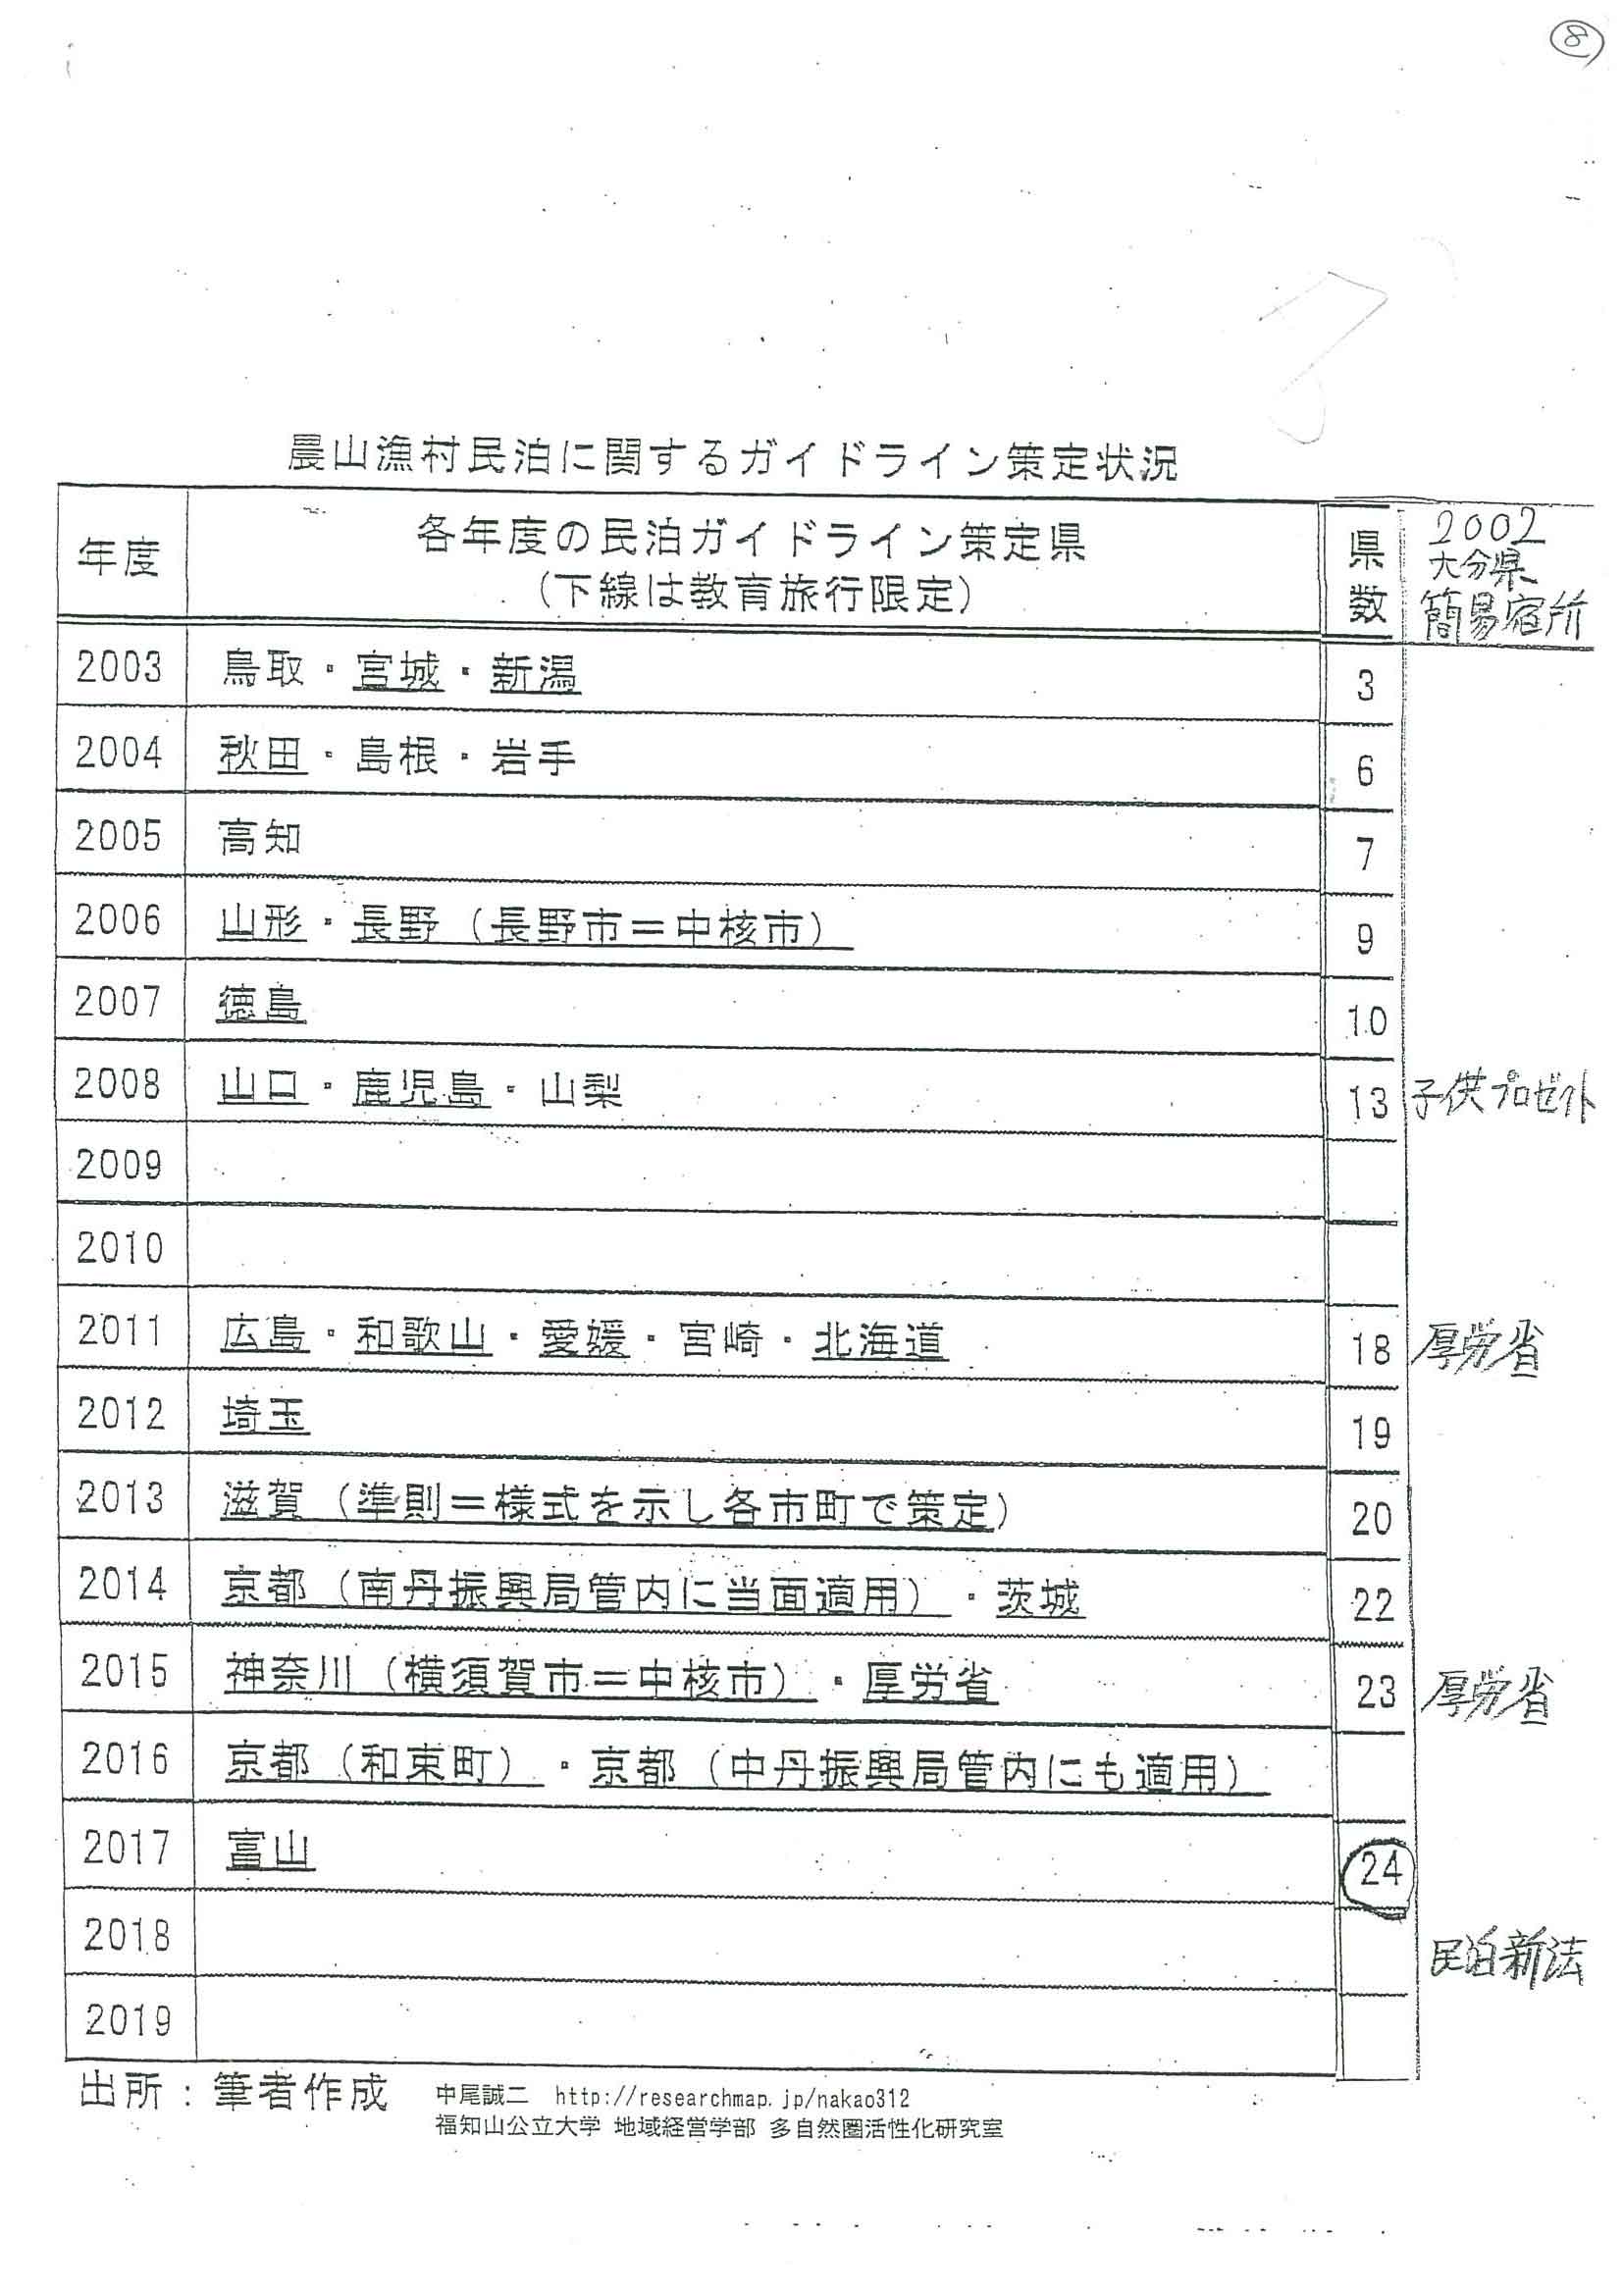 ⑧
農山漁村民泊に関するガイドライン策定状況
年度 各年度の民泊ガイドライン策定県 県数 2002
(下線は教育旅行限定) 大分県
簡易宿所
2003 鳥取・宮城・新潟 3
2004 秋田・島根・岩手 6
2005 高知 7
2006 山形・長野(長野市=中核市) 9
2007 徳島 10
2008 山口・鹿児島・山梨 13 子供プロゼクト
2009
2010
2011 広島・和歌山・愛媛・宮崎・北海道 18 厚労省
2012 埼玉 19
2013 滋賀(準則=様式を示し各市町で策定) 20
2014 京都(南丹振興局管内に当面適用)・茨城 22
2015 神奈川(横須賀市=中核市)・厚労省 23 厚労省
2016 京都(和束町)・京都(中丹振興局管内にも適用)
2017 富山 24
2018 民泊新法
2019
出所:筆者作成 中尾誠二 http://researchmap.jp/nakao312
福知山公立大学 地域経営学部 多自然圏活性化研究室